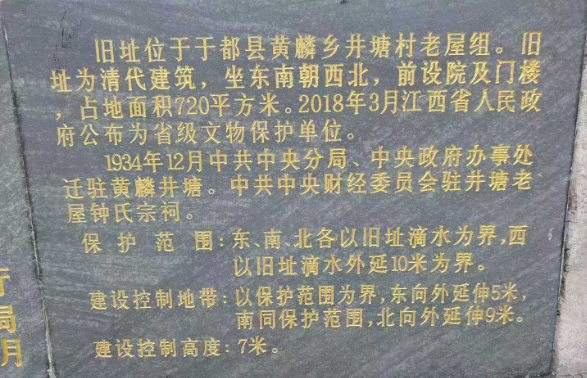 旧址位于于都县黄麟乡井塘村老屋组。旧
址为清代建筑，坐东南朝西北，前设院及门楼
，占地面积720平方米。2018年3月江西省人民政
府公布为省级文物保护单位。
1934年12月中共中央分局、中央政府办事处
迁驻黄麟井塘。中共中央财经委员会驻井塘老
屋钟氏宗祠。
保护范围：东、南、北各以旧址滴水为界，西
以旧址滴水外延10米为界。
建设控制地带：以保护范围为界，东向外延伸5米，
南同保护范围，北向外延伸9米。
建设控制高度：7米。
局
月